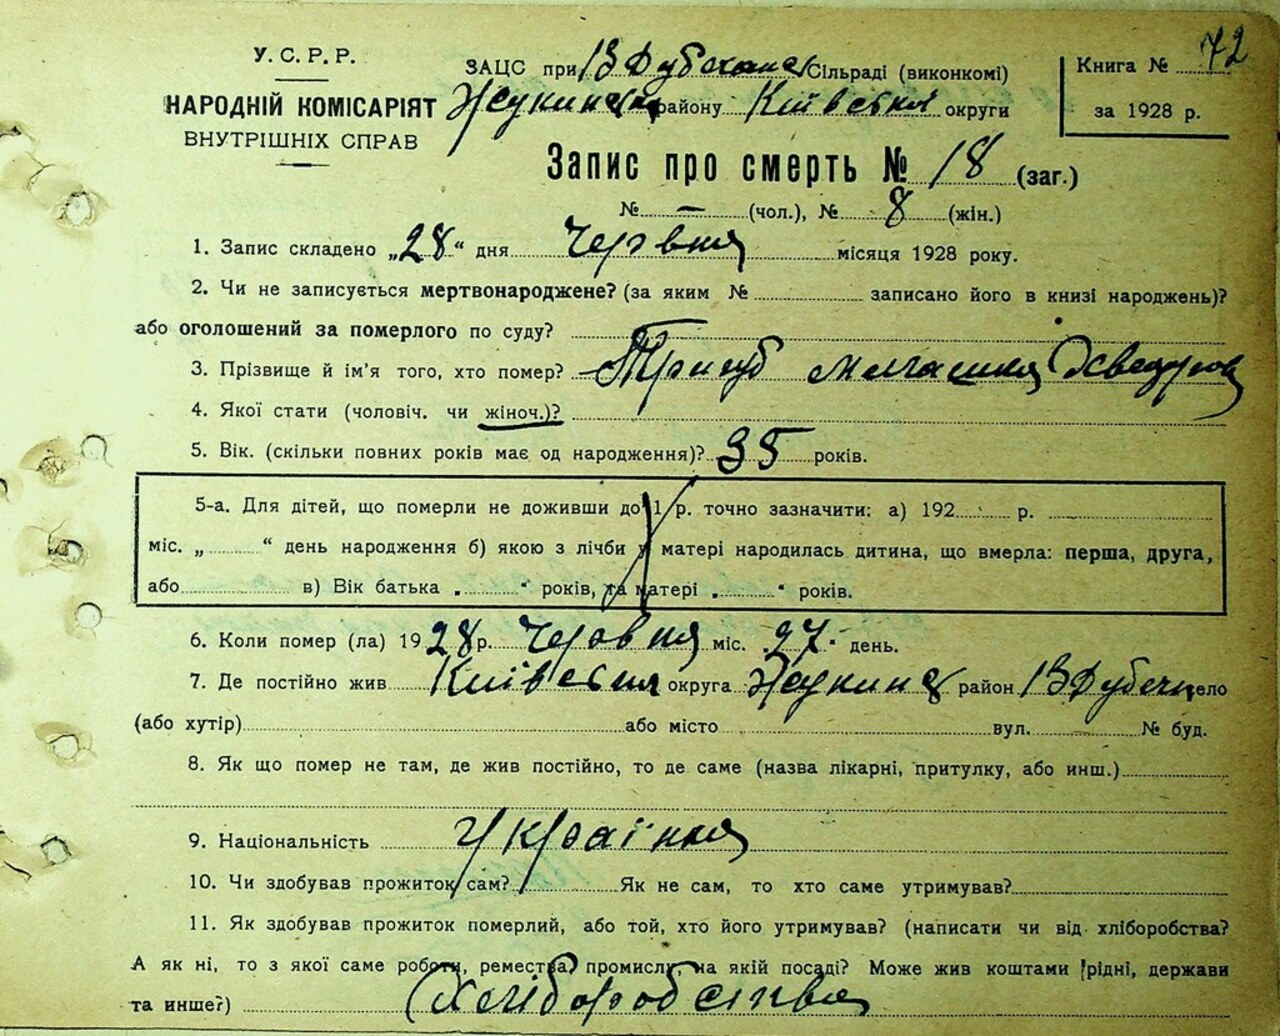 72
У. С. Р. Р.
ЗАЦС при В Дубечанс Сільраді (виконкомі)
Книга №
НАРОДНІЙ КОМІСАРІЯТ
Жукинськ району Київської округи
за 1928 р.
ВНУТРІШНІХ СПРАВ
Запис про смерть № 18 (заг.)
№ — (чол.), № 8 (жін.)
1. Запис складено „28“ дня Червня місяця 1928 року.
2. Чи не записується мертвонароджене? (за яким № записано його в книзі народжень)?
або оголошений за померлого по суду?
3. Прізвище й ім'я того, хто помер? Тригуб
4. Якої статі (чоловіч. чи жіноч.)?
5. Вік. (скільки повних років має од народження)? 35 років.
5-а. Для дітей, що померли не доживши до 1 р. точно зазначити: а) 192 р.
міс. „ “ день народження б) якою з лічби у матері народилась дитина, що вмерла: перша, друга,
або в) Вік батька „ “ років, та матері „ “ років.
6. Коли помер (ла) 1928 р. Червня міс. 27 день.
7. Де постійно жив Київська округа Жукинс район В Дубечн село
(або хутір) або місто вул. № буд.
8. Як що помер не там, де жив постійно, то де саме (назва лікарні, притулку, або инш.)
9. Національність Українка
10. Чи здобував прожиток сам? Як не сам, то хто саме утримував?
11. Як здобував прожиток померлий, або той, хто його утримував? (написати чи від хліборобства?
А як ні, то з якої саме роботи, ремества, промислу, на якій посаді? Може жив коштами рідні, держави
та инше?) Хліборобства